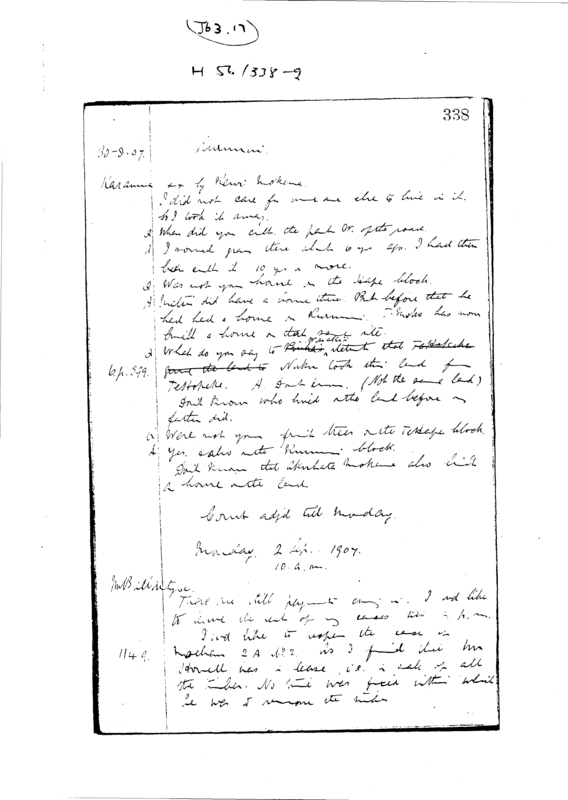 J63.17
H 56/338-9
338
30-8-07. Kurumai.
Karanama xx by Rewi Mokena.
I did not care for some one else to live in it.
So I took it away.
Q When did you cult. the part W. of the road.
A I moved from there about 6 yrs ago. I had then
been cultg it 10 yrs or more.
Q Was not your house on the Hape block.
A did have a house there. But before that he
had had a house on Kurumai. has now
built a house on that same site.
Q What do you say to statement that TeHopehe
gave the land to Naku took this land from
TeHopehe. A Don't know. (Not the same land)
Don't know who lived on the land before my
father did.
Q Were not your fruit trees on the TeHape block.
A Yes, & also on the Kurumai block.
Don't know that Mokena also built
a house on the land
Court adj'd till Monday.
Monday, 2 Sep. 1907.
10 a.m.
There are still payments coming in. I wd like
to leave the rest of my cases till 2 p.m.
I wd like to reopen the case of
114 9. 2A No 2. As I find that Mr
Howell has a lease, i.e. a sale of all
the timber. No time was fixed within which
he was to remove the timber